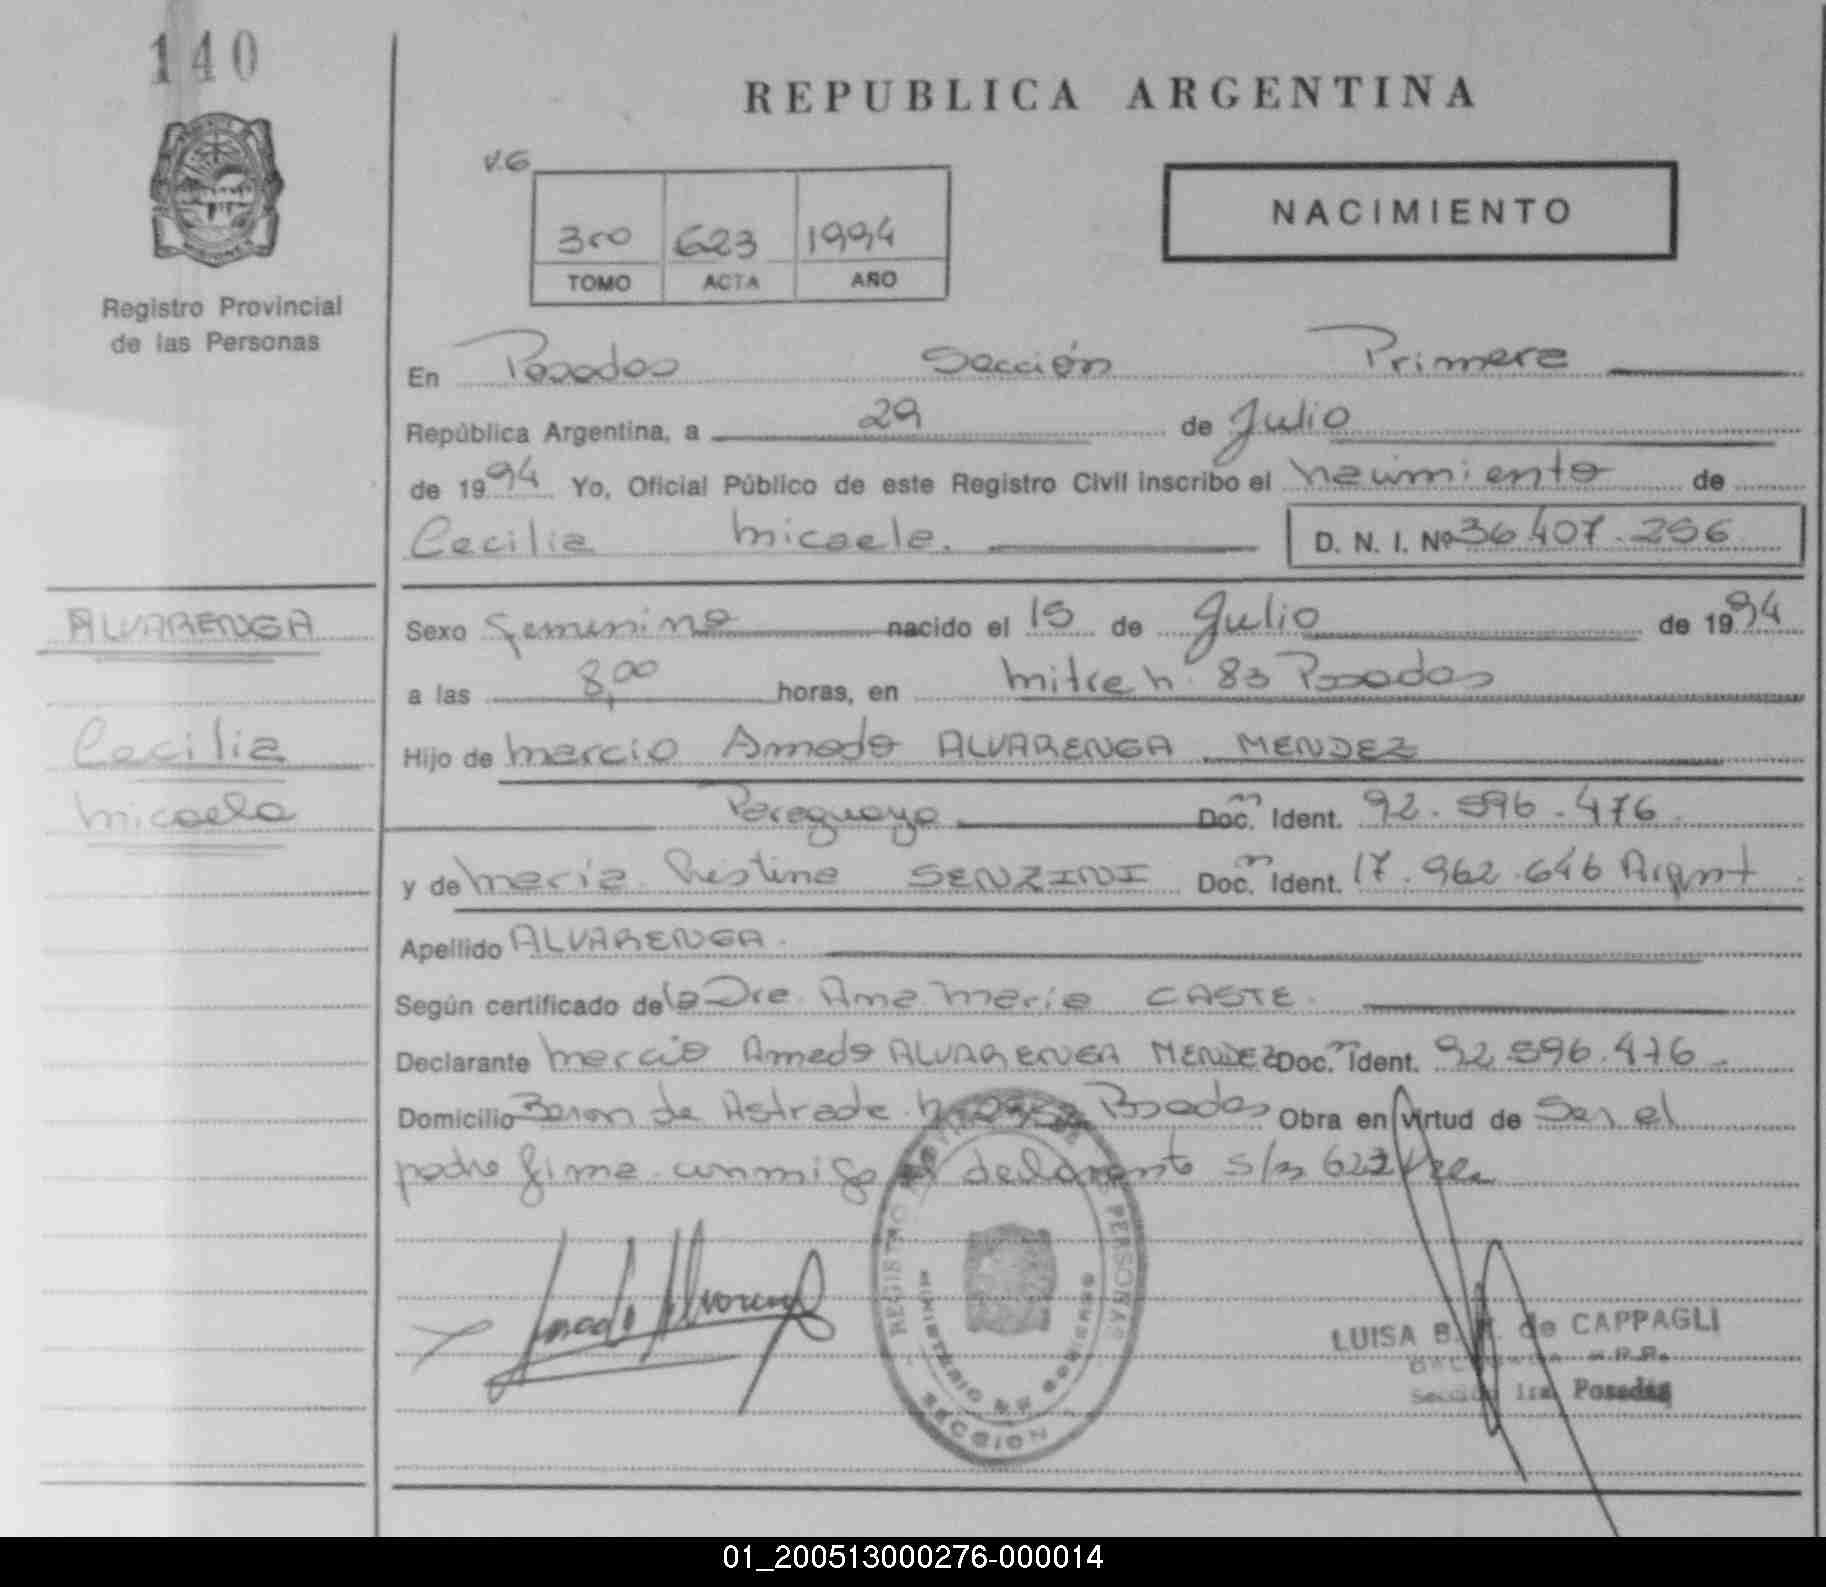 140
REPUBLICA ARGENTINA
V.G
3ro 623 1994
TOMO ACTA AÑO
NACIMIENTO
Registro Provincial
de las Personas
En Posadas Sección Primera
República Argentina, a 29 de Julio
de 1994 Yo, Oficial Público de este Registro Civil inscribo el nacimiento de
Cecilia Micaela. D. N. I. Nº 36.407.256
ALVARENGA
Cecilia
Micaela
Sexo femenino nacido el 15 de Julio de 1994
a las 8,00 horas, en Mitre n. 83 Posadas
Hijo de Marcio Amado ALVARENGA MENDEZ
Paraguayo Doc. Ident. 92.596.476
y de María Cristina SENZINI Doc. Ident. 17.962.646 Argnt
Apellido ALVARENGA.
Según certificado de la Dra. Ana María CASTE.
Declarante Marcio Amado ALVARENGA MENDEZ Doc. Ident. 92.596.476.
Domicilio Beron de Astrada Posadas Obra en virtud de Ser el
padre firma conmigo el declarante
Amado Alvarenga
REGISTRO PERSONAS
MINISTERIO DE GOBIERNO
SECCION
LUISA B. de CAPPAGLI
Sección 1ra. Posadas
01_200513000276-000014